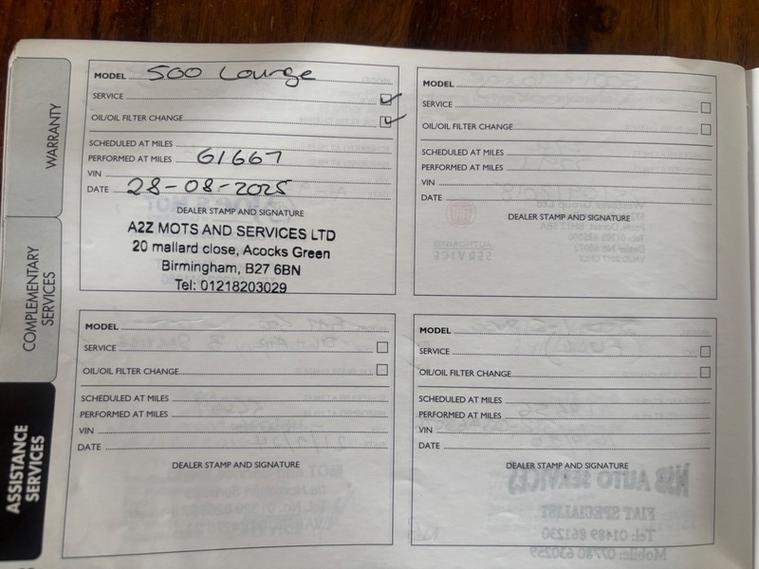 WARRANTY
COMPLEMENTARY
SERVICES
ASSISTANCE
SERVICES
MODEL 500 Lounge
SERVICE
OIL/OIL FILTER CHANGE
SCHEDULED AT MILES
PERFORMED AT MILES 61667
VIN
DATE 28-08-2025
DEALER STAMP AND SIGNATURE
A2Z MOTS AND SERVICES LTD
20 mallard close, Acocks Green
Birmingham, B27 6BN
Tel: 01218203029
MODEL
SERVICE
OIL/OIL FILTER CHANGE
SCHEDULED AT MILES
PERFORMED AT MILES
VIN
DATE
DEALER STAMP AND SIGNATURE
MODEL
SERVICE
OIL/OIL FILTER CHANGE
SCHEDULED AT MILES
PERFORMED AT MILES
VIN
DATE
DEALER STAMP AND SIGNATURE
MODEL
SERVICE
OIL/OIL FILTER CHANGE
SCHEDULED AT MILES
PERFORMED AT MILES
VIN
DATE
DEALER STAMP AND SIGNATURE
AUTO SERVICES
FIAT SPECIALIST
Tel: 01489 861230
Mobile: 07780 630259